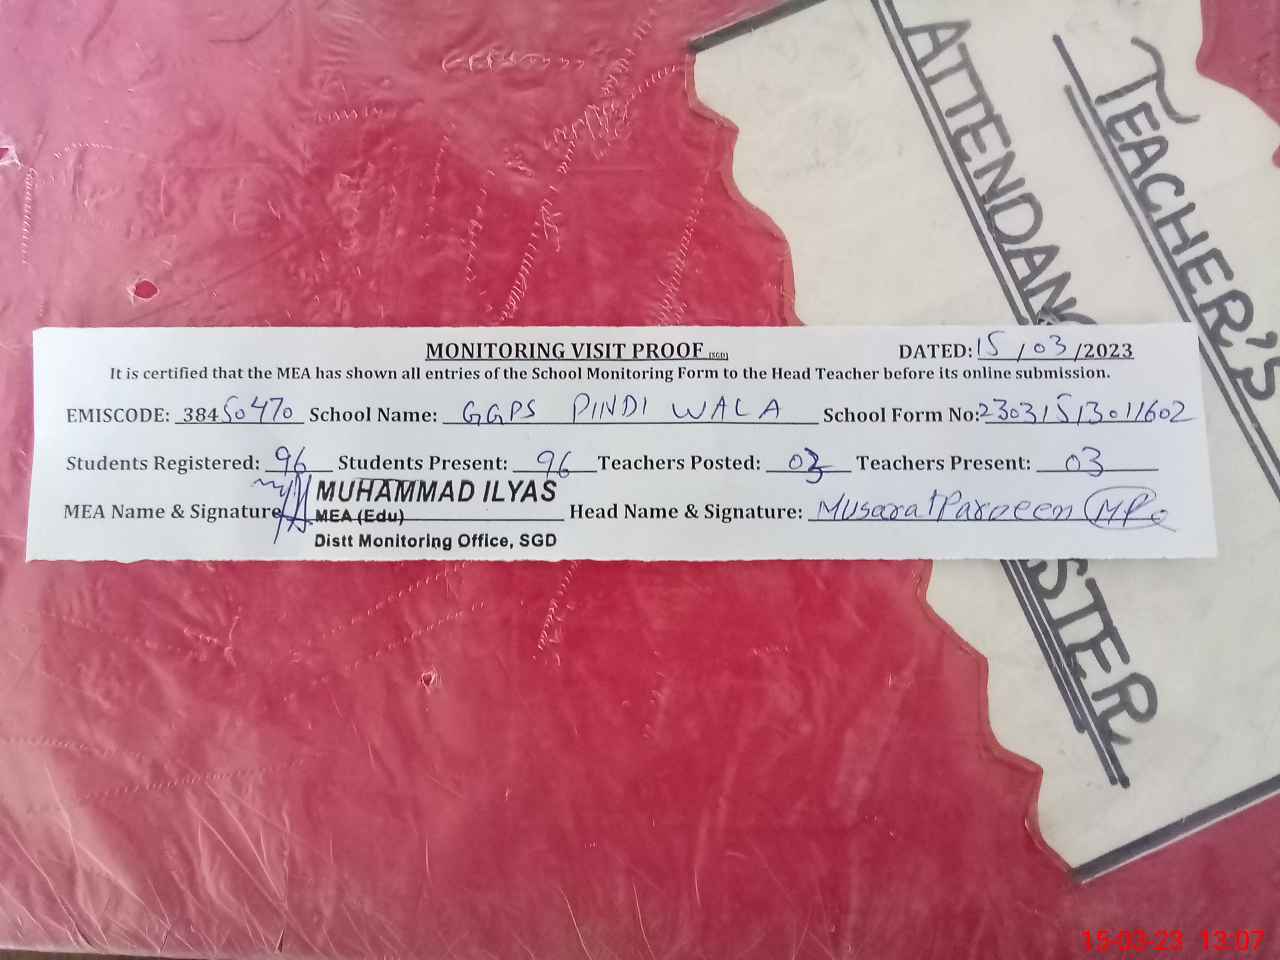 TEACHER'S
ATTENDANC
STER
MONITORING VISIT PROOF (SGD)
DATED: 15/03/2023
It is certified that the MEA has shown all entries of the School Monitoring Form to the Head Teacher before its online submission.
EMISCODE: 38450470 School Name: GGPS PINDI WALA School Form No: 23031513011602
Students Registered: 96 Students Present: 96 Teachers Posted: 03 Teachers Present: 03
MEA Name & Signature MUHAMMAD ILYAS Head Name & Signature: Musarat Parveen MP
MEA (Edu)
Distt Monitoring Office, SGD
15-03-23 13:07